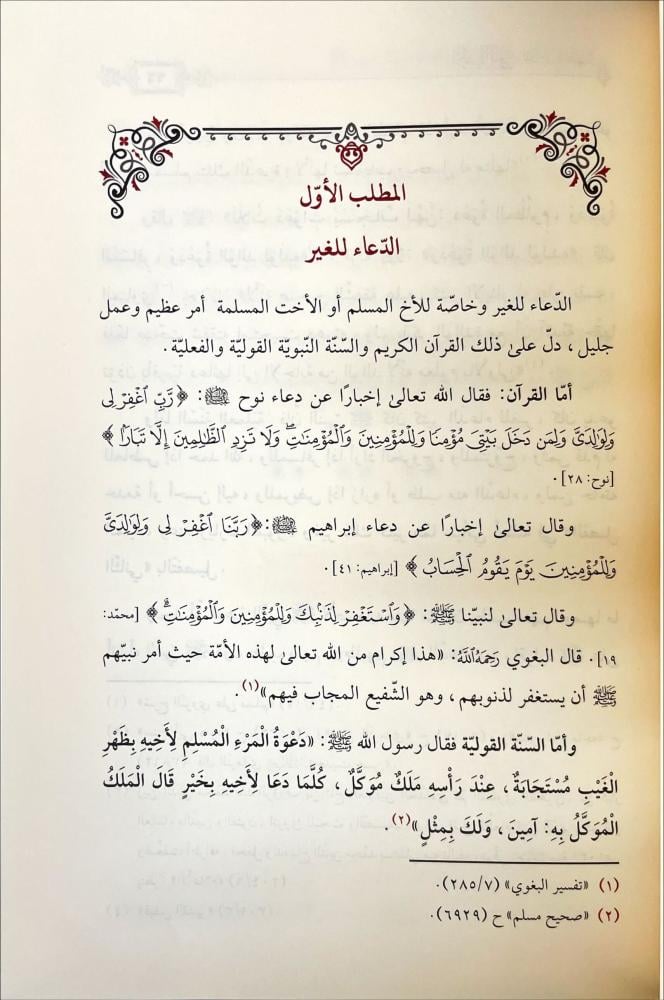 المطلب الأوّل
الدّعاء للغير
الدّعاء للغير وخاصّة للأخ المسلم أو الأخت المسلمة أمر عظيم وعمل
جليل، دلّ على ذلك القرآن الكريم والسّنّة النّبويّة القوليّة والفعليّة.
أمّا القرآن: فقال الله تعالى إخبارًا عن دعاء نوح ﷺ: ﴿رَّبِّ ٱغْفِرْ لِى
وَلِوَٰلِدَىَّ وَلِمَن دَخَلَ بَيْتِىَ مُؤْمِنًا وَلِلْمُؤْمِنِينَ وَٱلْمُؤْمِنَٰتِۖ وَلَا تَزِدِ ٱلظَّٰلِمِينَ إِلَّا تَبَارًۢا﴾
[نوح: ٢٨].
وقال تعالى إخبارًا عن دعاء إبراهيم ﷺ: ﴿رَبَّنَا ٱغْفِرْ لِى وَلِوَٰلِدَىَّ
وَلِلْمُؤْمِنِينَ يَوْمَ يَقُومُ ٱلْحِسَابُ﴾ [إبراهيم: ٤١].
وقال تعالى لنبيّنا ﷺ: ﴿وَٱسْتَغْفِرْ لِذَنۢبِكَ وَلِلْمُؤْمِنِينَ وَٱلْمُؤْمِنَٰتِۗ﴾ [محمّد:
١٩]. قال البغوي رَحِمَهُ اللَّهُ: «هذا إكرام من الله تعالى لهذه الأمّة حيث أمر نبيّهم
ﷺ أن يستغفر لذنوبهم، وهو الشّفيع المجاب فيهم»(١).
وأمّا السّنّة القوليّة فقال رسول الله ﷺ: «دَعْوَةُ الْمَرْءِ الْمُسْلِمِ لِأَخِيهِ بِظَهْرِ
الْغَيْبِ مُسْتَجَابَةٌ، عِنْدَ رَأْسِهِ مَلَكٌ مُوَكَّلٌ، كُلَّمَا دَعَا لِأَخِيهِ بِخَيْرٍ قَالَ الْمَلَكُ
الْمُوَكَّلُ بِهِ: آمِينَ، وَلَكَ بِمِثْلٍ»(٢).
(١) «تفسير البغوي» (٢٨٥/٧).
(٢) «صحيح مسلم» ح (٦٩٢٩).